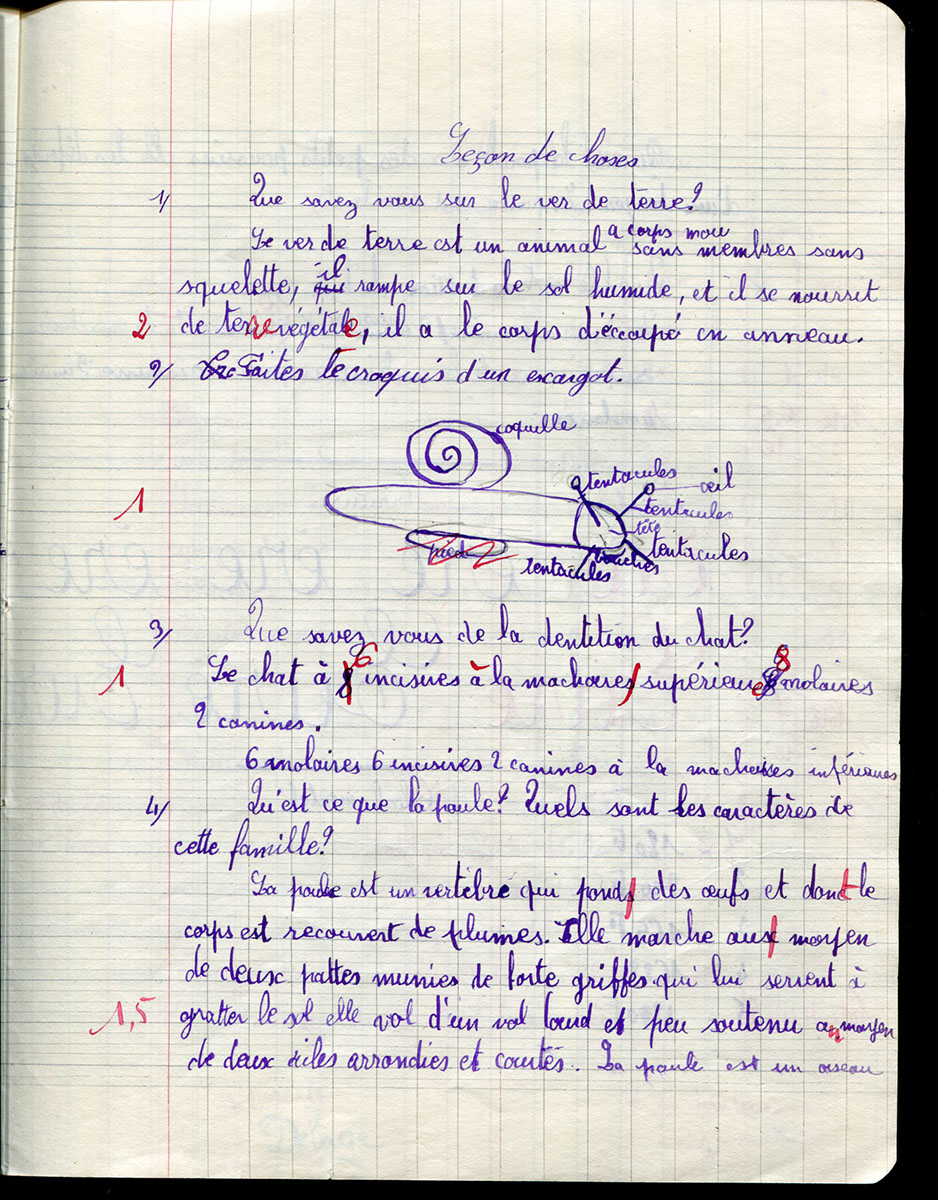 Leçon de choses
1/ Que savez vous sur le ver de terre?
a corps mou
Le ver de terre est un animal sans membres sans
squelette, il rampe sur le sol humide, et il se nourrit
2 de terre végétale, il a le corps d'écoupé en anneau.
2/ Faites le croquis d'un escargot.
coquille
tentacules
oeil
tentacules
tête
1
tentacules
pied
bouches
tentacules
3/ Que savez vous de la dentition du chat?
1 Le chat à 6 incisives à la machoire supérieure 8 molaires
2 canines.
6 molaires 6 incisives 2 canines à la machoires inférieures
4/ Qu'est ce que la poule? Quels sont les caractères de
cette famille?
La poule est un vertébré qui pond des œufs et dont le
corps est recouvert de plumes. Elle marche au moyen
de deux pattes munies de forte griffes qui lui servent à
1,5 gratter le sol elle vol d'un vol lourd et peu soutenu au moyen
de deux ailes arrondies et courtes. La poule est un oiseau